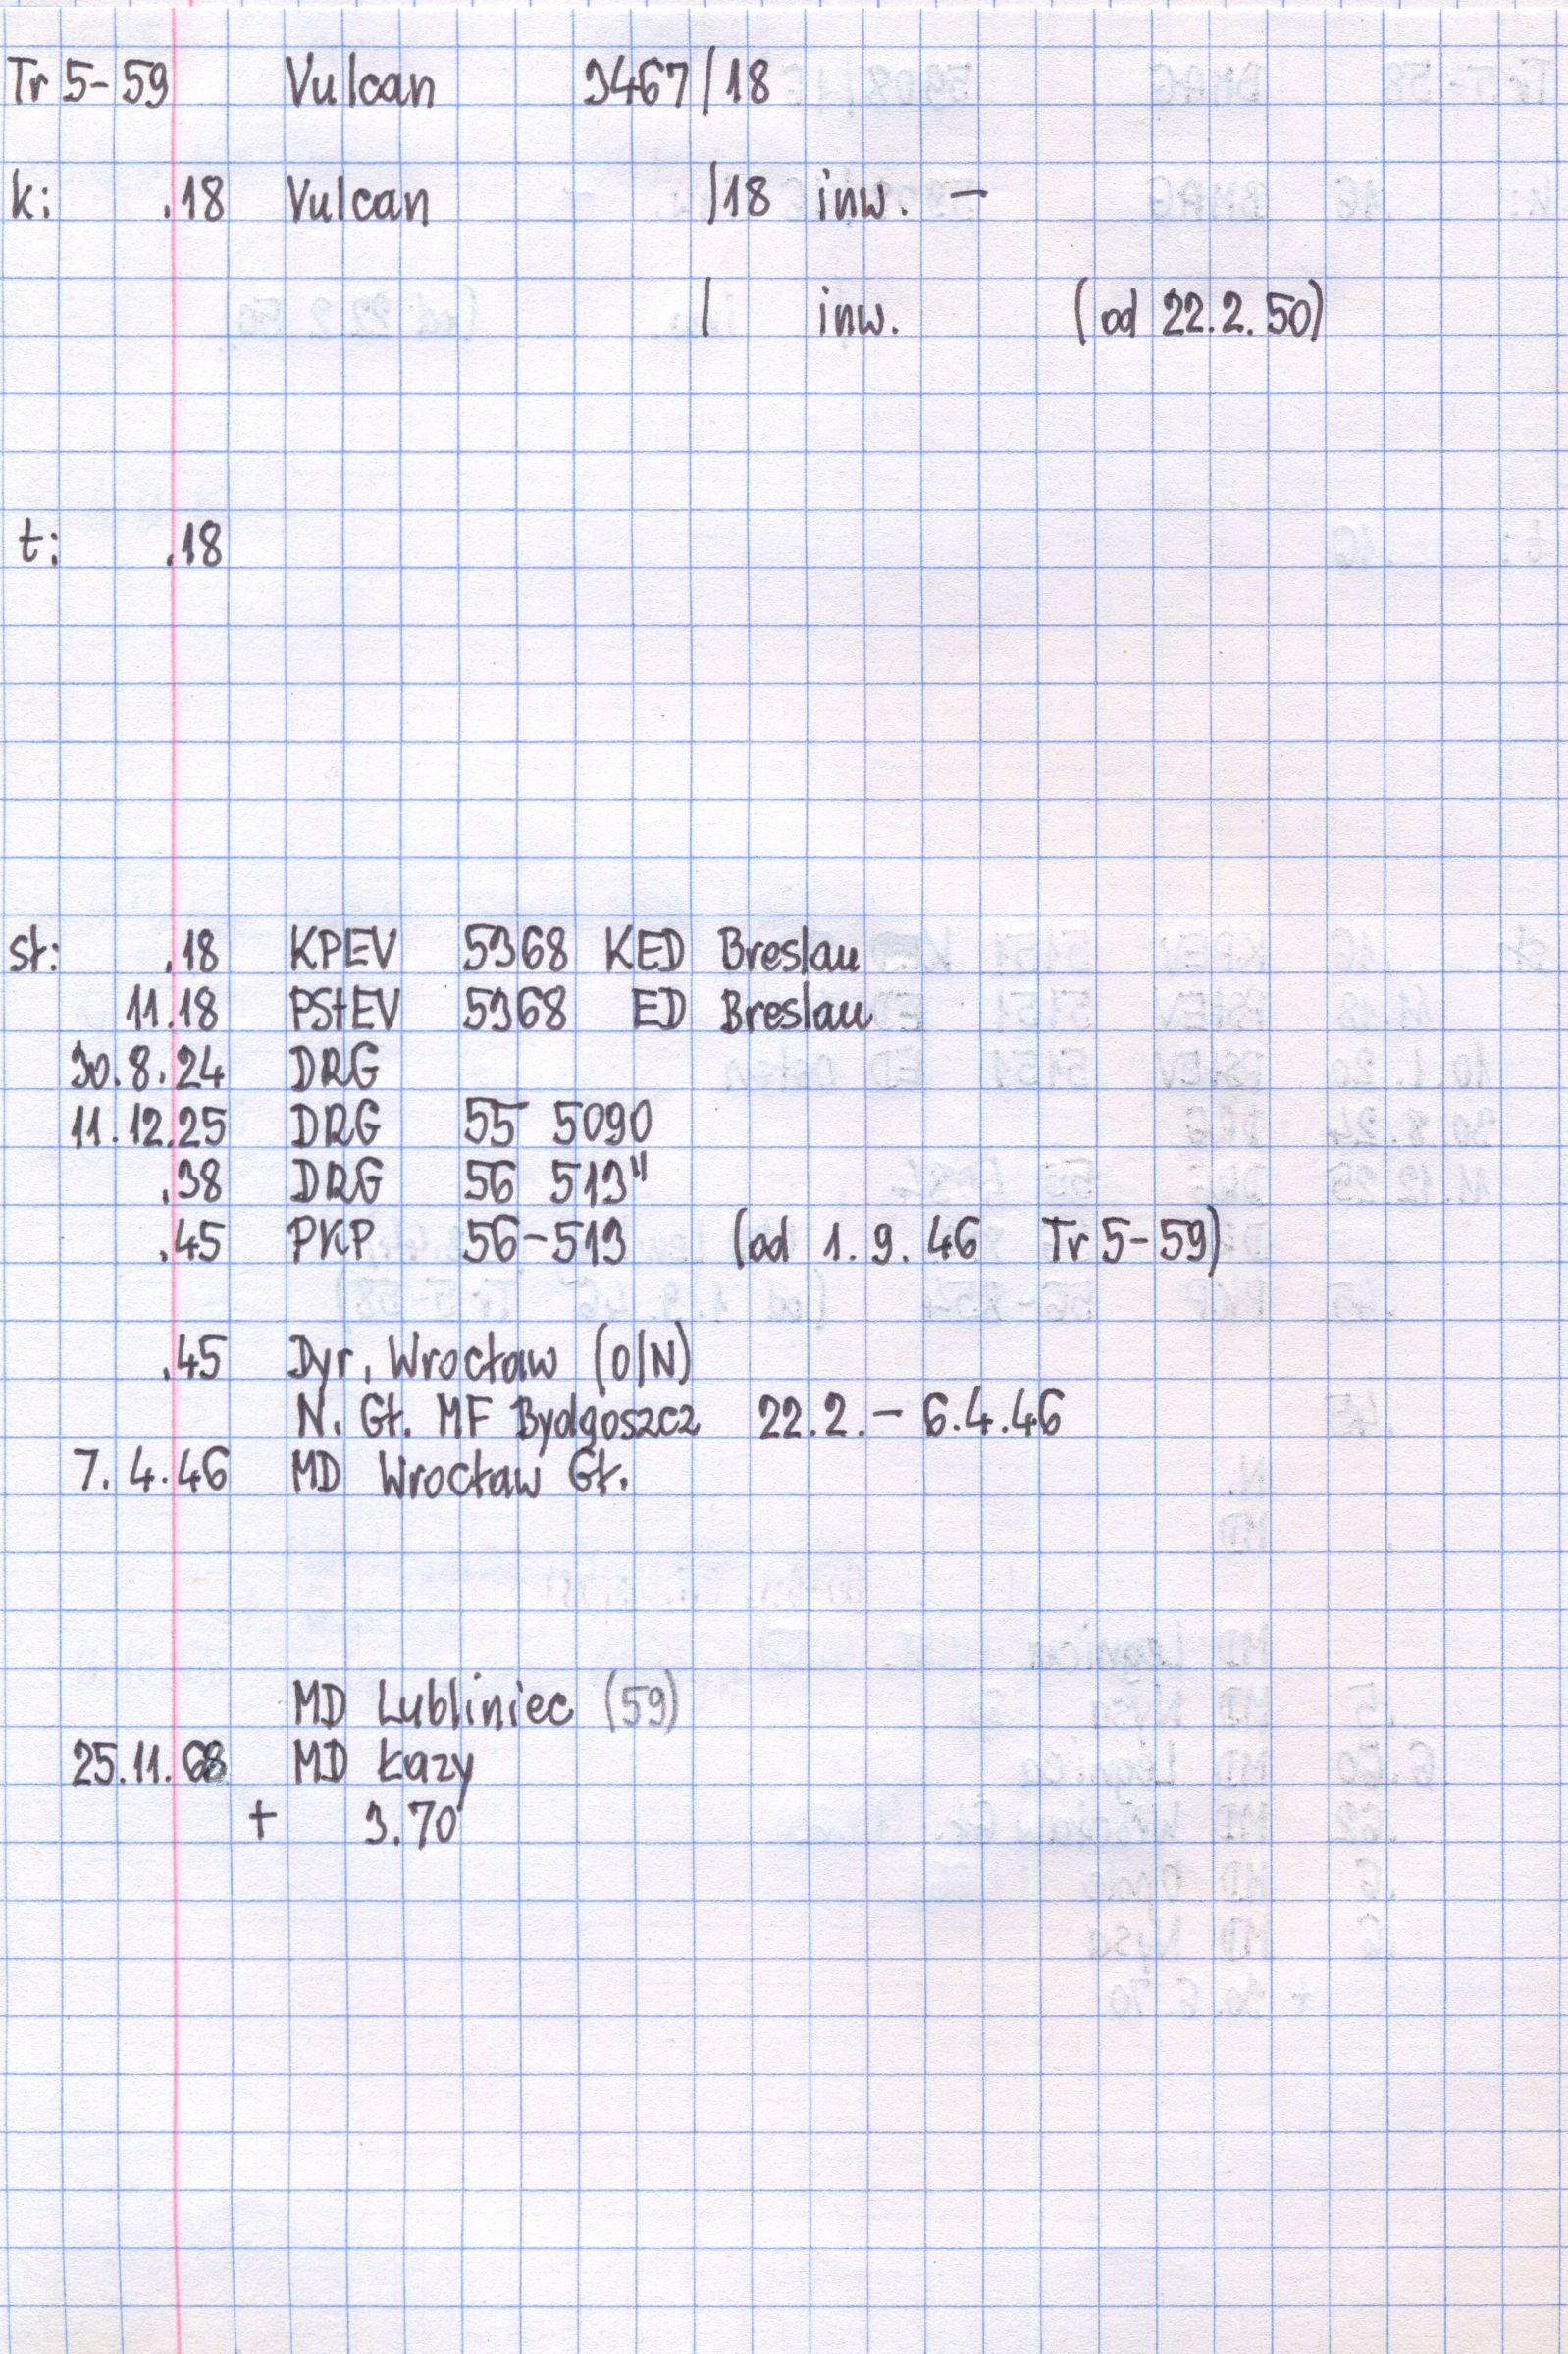 Tr 5-59 Vulcan 3467/18
k: .18 Vulcan /18 inw. –
/ inw. (od 22.2.50)
t: .18
st: .18 KPEV 5368 KED Breslau
11.18 PStEV 5368 ED Breslau
30.8.24 DRG
11.12.25 DRG 55 5090
.38 DRG 56 513"
.45 PKP 56-513 (od 1.9.46 Tr 5-59)
.45 Dyr. Wrocław (O/N)
N. Gł. MF Bydgoszcz 22.2. – 6.4.46
7.4.46 MD Wrocław Gł.
MD Lubliniec (59)
25.11.68 MD Łazy
+ 3.70